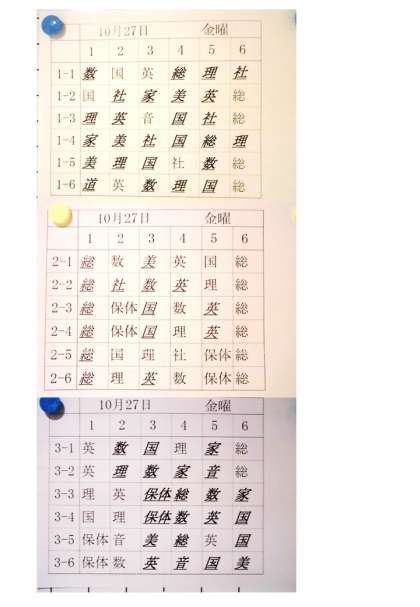 10月27日 金曜
1 2 3 4 5 6
1-1 数 国 英 総 理 社
1-2 国 社 家 美 英 総
1-3 理 英 音 国 社 総
1-4 家 美 社 国 総 理
1-5 美 理 国 社 数 総
1-6 道 英 数 理 国 総
10月27日 金曜
1 2 3 4 5 6
2-1 総 数 美 英 国 総
2-2 総 社 数 英 理 総
2-3 総 保体 国 数 英 総
2-4 総 保体 国 理 英 総
2-5 総 国 理 社 保体 総
2-6 総 理 英 数 保体 総
10月27日 金曜
1 2 3 4 5 6
3-1 英 数 国 理 家 総
3-2 英 理 数 家 音 総
3-3 理 英 保体 総 数 家
3-4 国 理 保体 数 英 国
3-5 保体 音 美 総 英 国
3-6 保体 数 英 音 国 美